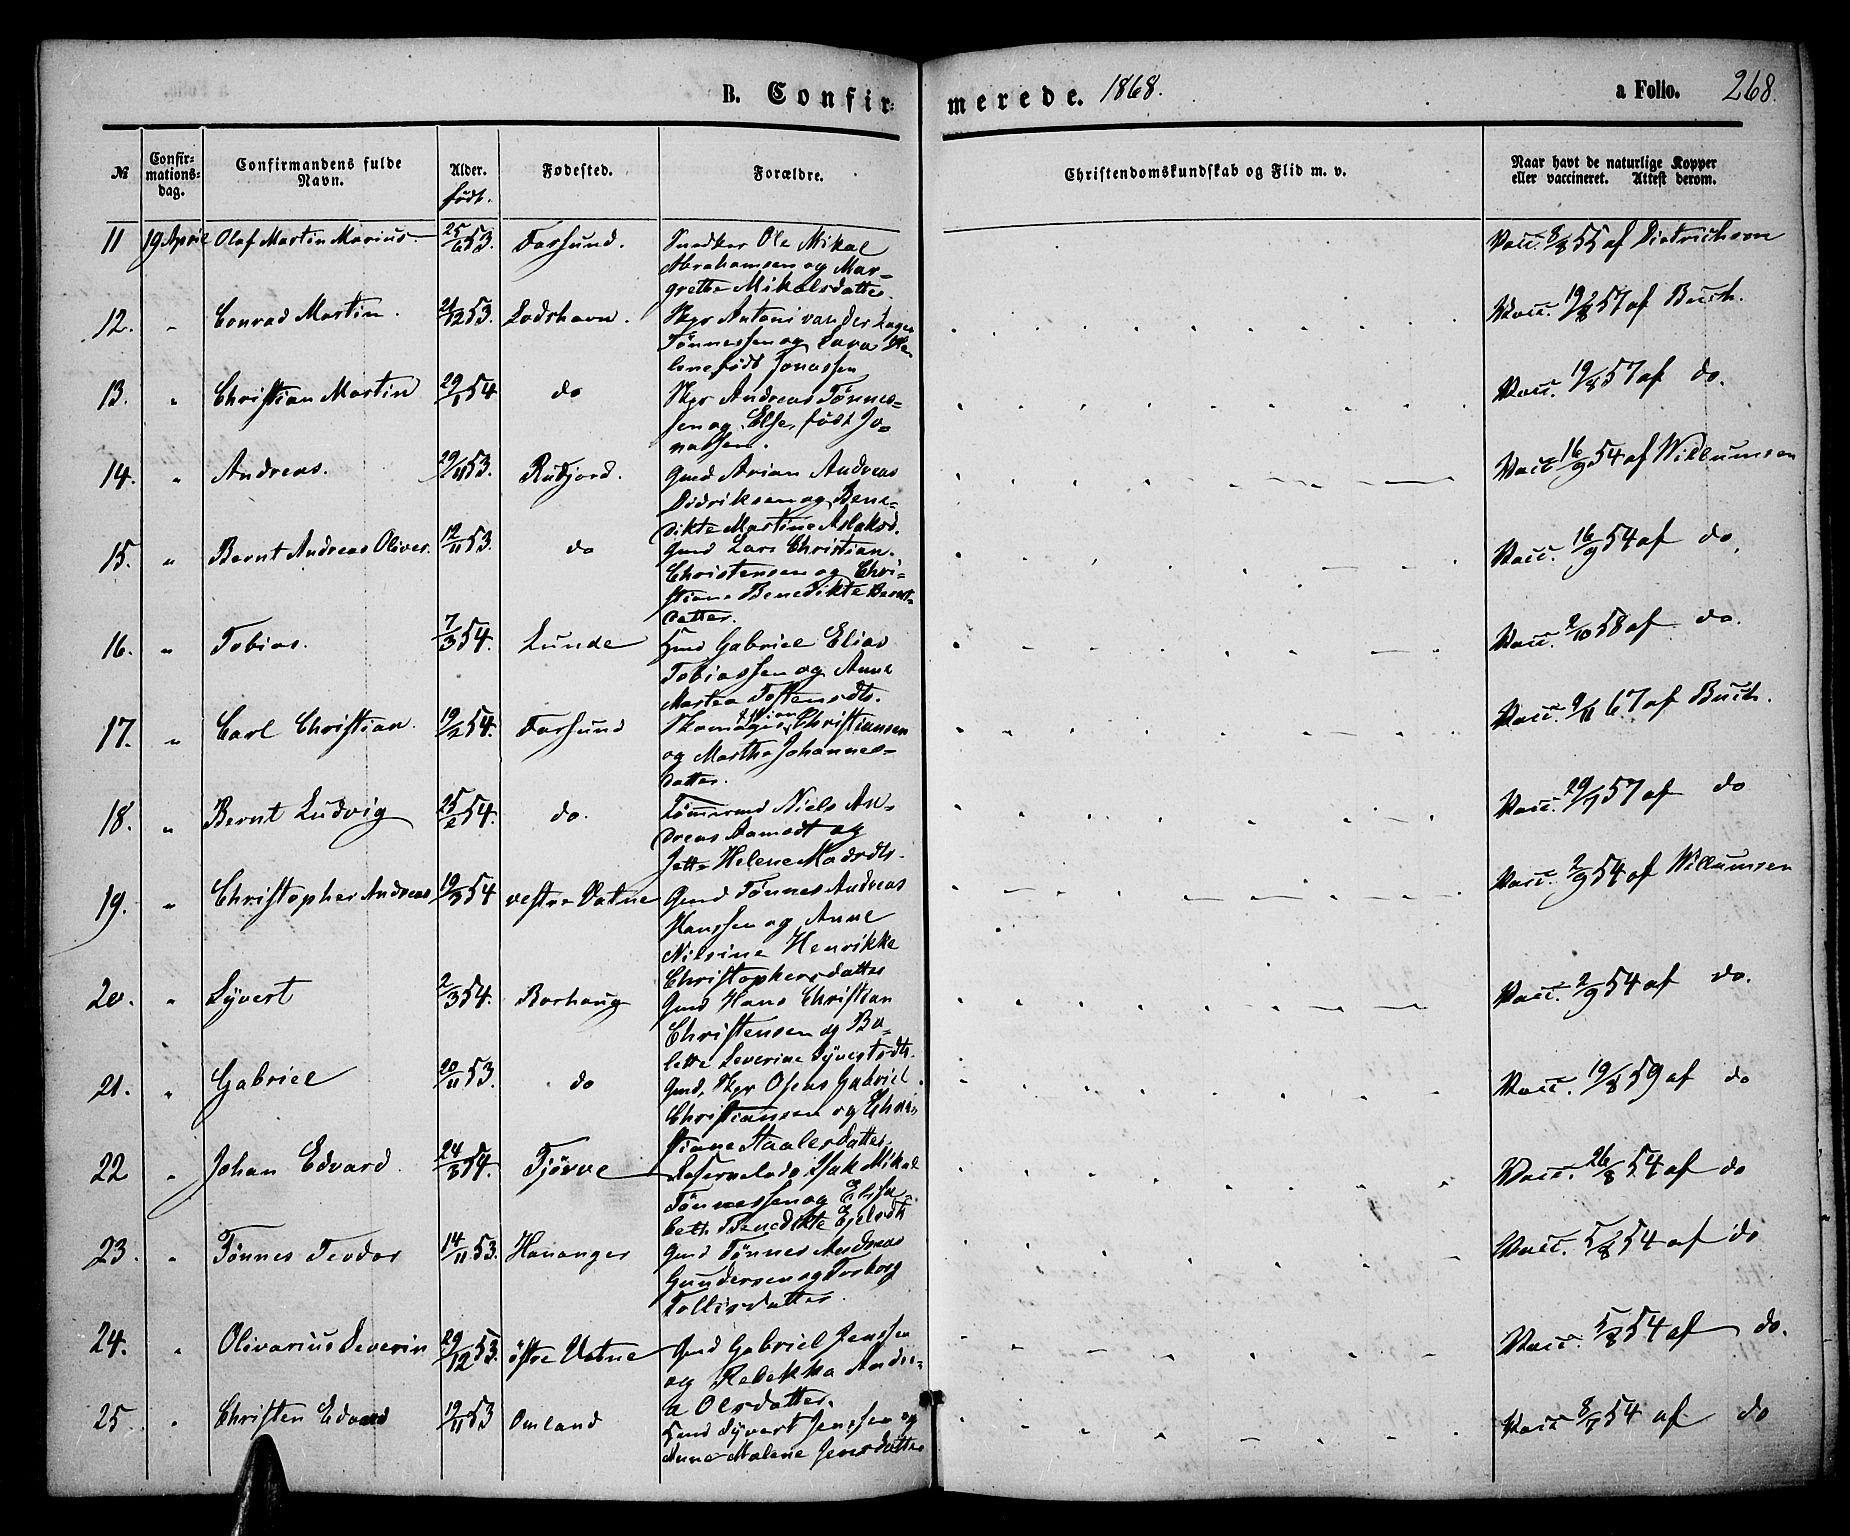 B. Confir-
merede. 1868.
a Folio. 268.
№
Confir-
mations-
dag.
Confirmandens fulde
Navn.
Alder.
født.
Fødested.
Forældre.
Christendomskundskab og Flid m. v.
Naar havt de naturlige Kopper
eller vaccineret. Attest derom.
11 19 April Olaf Martin Marius 25/6 53. Farsund. Snedker Ole Mikal
Abrahamsen og Mar-
grethe Mikalsdatter.
Vacc. 8/8 55 af Dietrichson
12. " Conrad Martin. 21/12 53. Lodshavn. Skpr Antoni van der Lagen
Tønnessen og Sara He-
lene født Jonassen
Vacc. 19/8 57 af Buch.
13. " Christian Martin 29/1 54 do Skpr Andreas Tønnes-
sen og Else, født Jo-
nassen.
Vacc. 19/8 57 af do.
14. " Andreas. 29/11 53. Rudjord. Gmd Arian Andreas
Didriksen og Bene-
dikte Martine Aslaksd.
Vacc 16/9 54 af Willumsen
15. " Bernt Andreas Oliver. 12/11 53. do Gmd Lars Christian
Christensen og Chri-
stiane Benedikte Bernt-
datter.
Vacc. 16/9 54 af do.
16. " Tobias. 7/3 54. Lunde Hmd Gabriel Elias
Tobiassen og Anne
Martea Tostensdtr.
Vacc. 2/10 58 af do.
17. " Carl Christian. 19/2 54. Farsund Skomager Christiansen
og Martha Johannes-
datter.
Vacc. 9/11 67 af Buch.
18. " Bernt Ludvig 25/2 54. do. Tømmermd Niels An-
dreas Aamodt og
Jette Helene Madsdtr.
Vacc. 29/7 57 af do
19. " Christopher Andreas 19/3 54 vestre Vatne Gmd Tønnes Andreas
Hanssen og Anne
Nilsine Henrikke
Christophersdatter
Vacc. 2/9 54 af Willumsen
20. " Syvert 2/3 54. Borhaug Gmd Hans Christian
Christensen og Bo-
lette Severine Syvertsdtr.
Vacc. 2/9 54 af do.
21. " Gabriel 20/11 53. do Gmd, Skpr Oseas Gabriel
Christiansen og Chri-
stiane Staalesdatter.
Vacc. 19/8 59 af do
22 " Johan Edvard. 24/3 54. Tjørve Reservelods Isak Mikal
Tønnessen og Elisa-
beth Benedikte Ejelsdtr
Vacc. 26/8 54 af do
23. " Tønnes Teodor 14/11 53. Hananger Gmd Tønnes Andreas
Gundersen og Torborg
Tollisdatter.
Vacc. 5/8 54 af do
24. " Olivarius Severin 29/12 53. østre Vatne Gmd Gabriel Jenssen
og Rebekka Andre-
a Olsdatter.
Vacc. 5/8 54 af do.
25. " Christen Edvard 19/11 53 Omland Hmd Syvert Jenssen og
Anne Malene Jensdatter
Vacc 8/7 54 af do